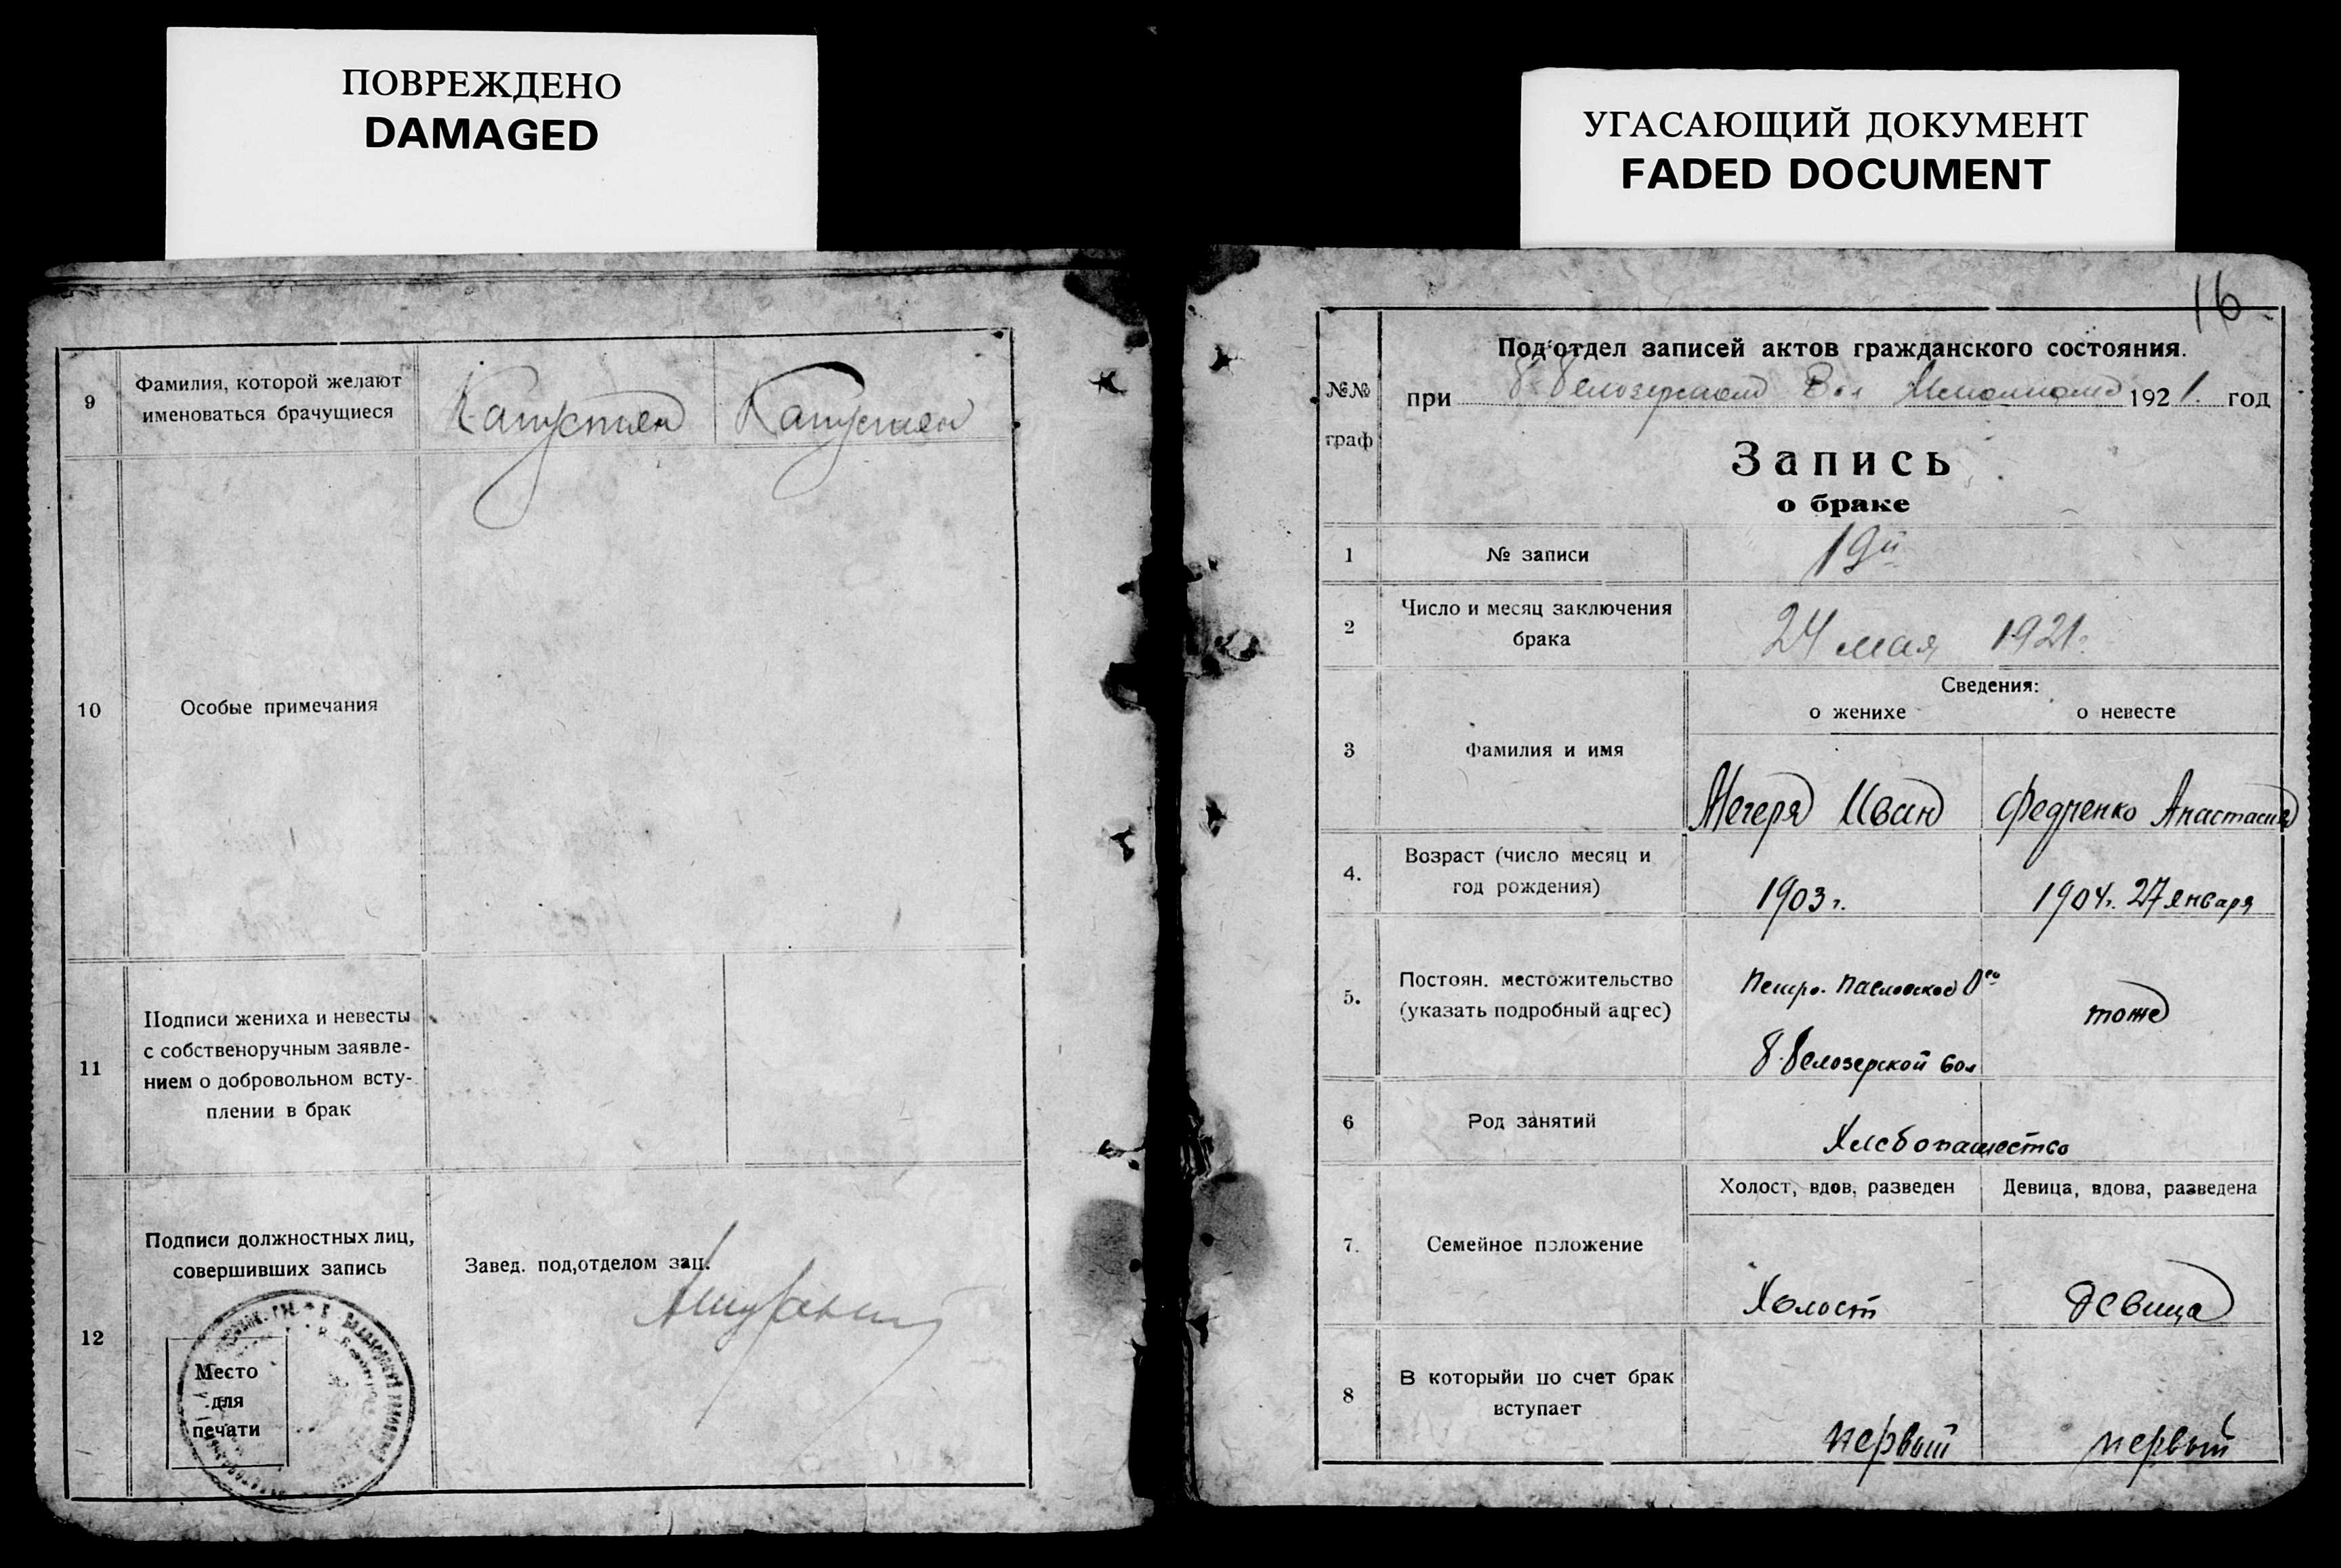 ПОВРЕЖДЕНО
DAMAGED
9
Фамилия, которой желают
именоваться брачущиеся
Капустян
Капустян
10
Особые примечания
11
Подписи жениха и невесты
с собственоручным заявле-
нием о добровольном всту-
плении в брак
12
Подписи должностных лиц,
совершивших запись
Завед. под,отделом зап.
Место
для
печати
УГАСАЮЩИЙ ДОКУМЕНТ
FADED DOCUMENT
16
№№
граф
Под'отдел записей актов гражданского состояния.
при Б-Белозерском Вол Исполкоме 1921. год
Запись
о браке
1
№ записи
19й
2
Число и месяц заключения
брака
24 мая 1921г.
3
Фамилия и имя
Сведения:
о женихе
о невесте
Мегеря Иван
Федренко Анастасия
4.
Возраст (число месяц и
год рождения)
1903 г.
1904г. 27 января
5.
Постоян. местожительство
(указать подробный адрес)
Петро-Павловское
Б-Белозерской вол
тоже
6
Род занятий
Хлебопашество
7.
Семейное положение
Холост, вдов, разведен
Девица, вдова, разведена
Холост
девица
8
В которыйи по счет брак
вступает
первый
первый